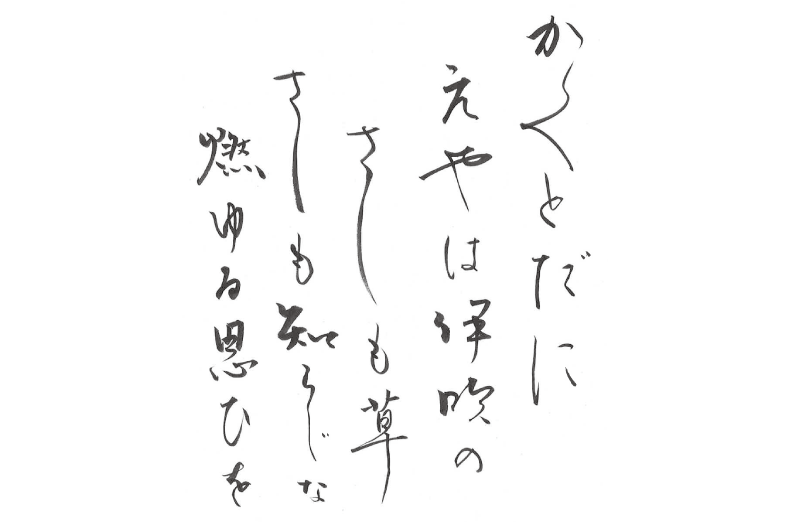 かくとだに
えやは伊吹の
さしも草
さしも知らじな
燃ゆる思ひを